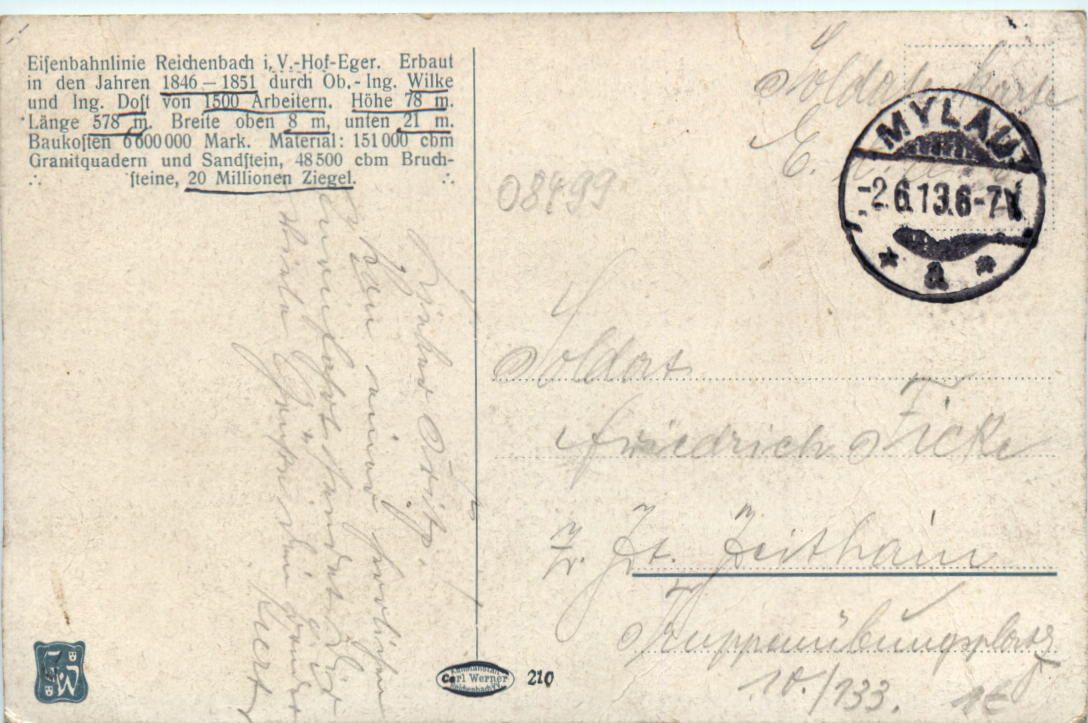 Eiſenbahnlinie Reichenbach i. V.-Hof-Eger. Erbaut
in den Jahren 1846–1851 durch Ob.-Ing. Wilke
und Ing. Doſt von 1500 Arbeitern. Höhe 78 m.
Länge 578 m. Breite oben 8 m, unten 21 m.
Baukoſten 6 600 000 Mark. Material: 151 000 cbm
Granitquadern und Sandſtein, 48 500 cbm Bruch-
∴ ſteine, 20 Millionen Ziegel. ∴
Soldatenkarte
MYLAU
-2.6.13.6-7
* a *
08499
Lieber
von einer
sendet Dir
viele Grüße Dein Bruder
Kurt
Soldat
Friedrich Ficke
z. Zt. Zeithain
Truppenübungsplatz
10./133.
1€
Carl Werner
Reichenbach i. V.
210